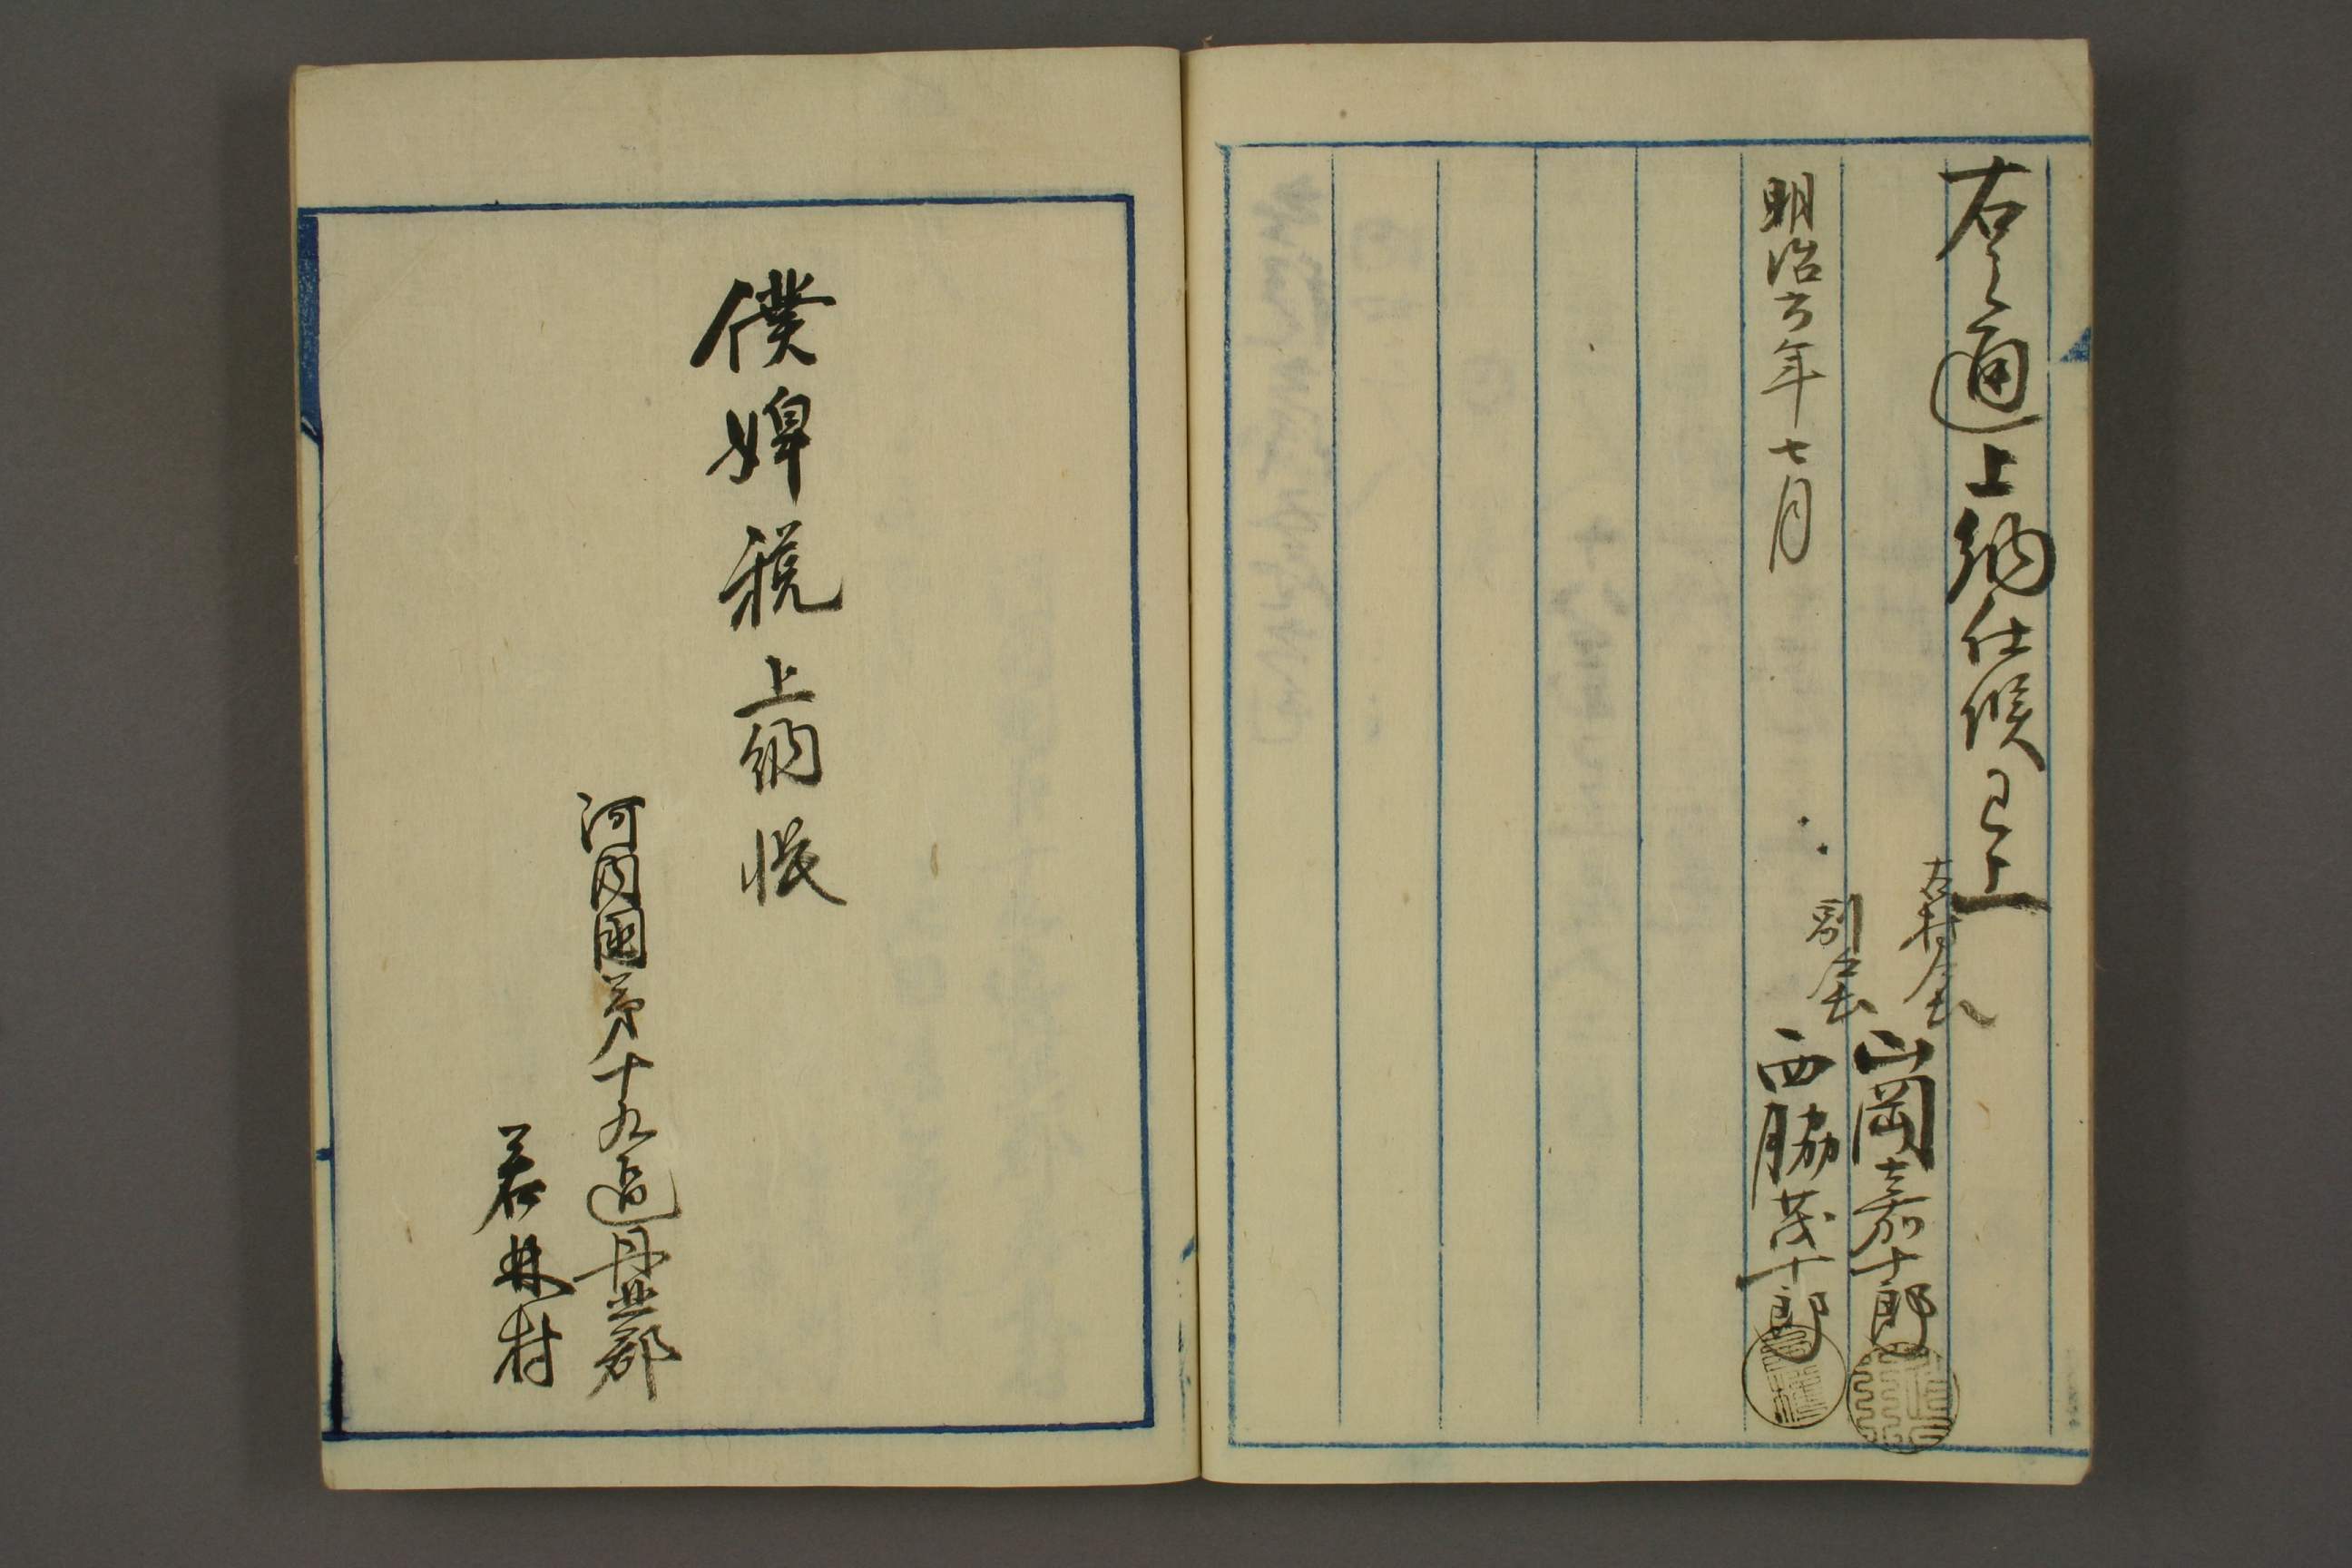 右之通上納仕候已上
右村
山岡嘉十郎
副
西脇茂十郎
明治六年七月
僕婢税上納帳
河内国第十九区丹北郡
若林村